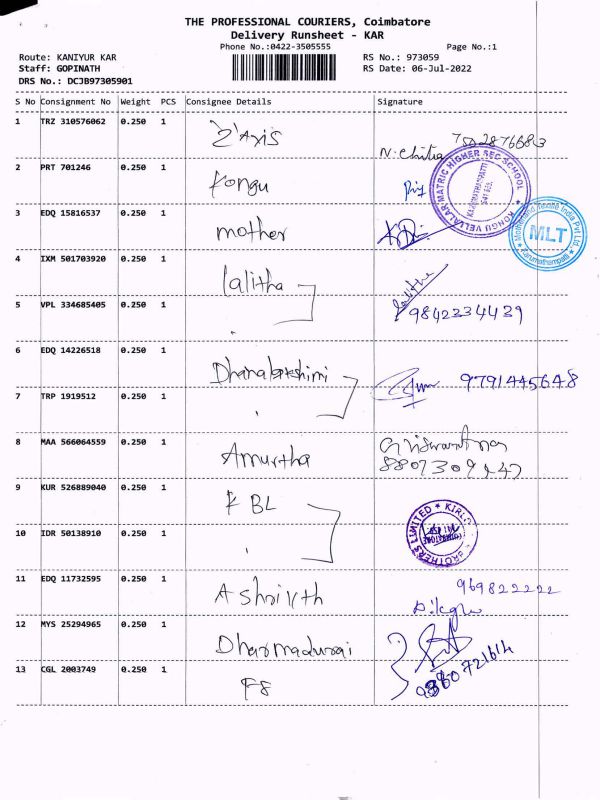 THE PROFESSIONAL COURIERS, Coimbatore
Delivery Runsheet - KAR
Phone No.:0422-3505555
Page No.:1
Route: KANIYUR KAR
RS No.: 973059
Staff: GOPINATH
RS Date: 06-Jul-2022
DRS No.: DCJB97305901
S No Consignment No Weight PCS Consignee Details Signature
1 TRZ 310576062 0.250 1 Z'Axis N. Chitra
2 PRT 701246 0.250 1 Kongu
KONGU VELLALAR MATRIC HIGHER SEC SCHOOL
KARUMATHAMPATTI
3 EDQ 15816537 0.250 1 mother
Motherland Textile India Pvt Ltd
MLT
Karumathampatti
4 IXM 501703920 0.250 1 lalitha Lalitha
5 VPL 334685405 0.250 1 9842234429
6 EDQ 14226518 0.250 1 Dhanalakshimi 9791445648
7 TRP 1919512 0.250 1
8 MAA 566064559 0.250 1 Amurtha
9 KUR 526889040 0.250 1 KBL
BROTHERS LIMITED
10 IDR 50138910 0.250 1
11 EDQ 11732595 0.250 1 Ashrivth 969822222
12 MYS 25294965 0.250 1 Dharmadurai
13 CGL 2003749 0.250 1 F8 9360721614